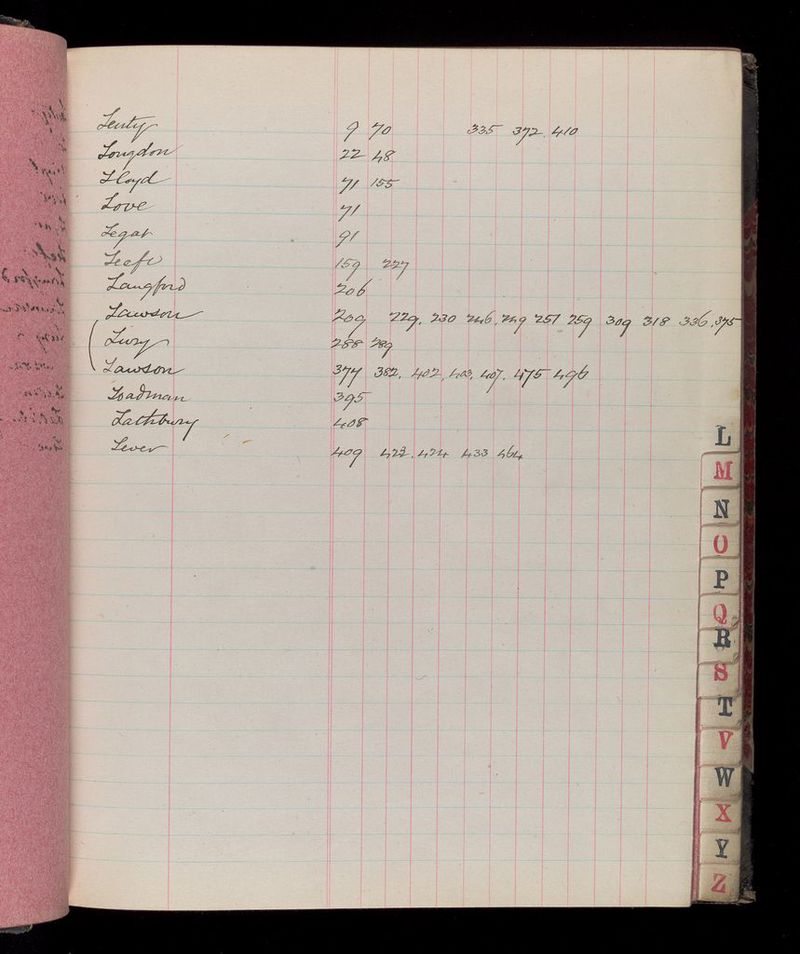 Lenty 9 70 335 372 410
Longdon 22 48
Lloyd 71 155
Love 71
Legat 91
Leefe 159 227
Langford 206
Lawson 209 229. 230 246. 249 257 259 309 318 336. 375
Lury 288 289
Lawson 374 382. 402. 403. 407. 475 496
Loadman 395
Lathbury 408
Lever 409 422. 424 433 464
L
M
N
O
P
Q
R
S
T
V
W
X
Y
Z